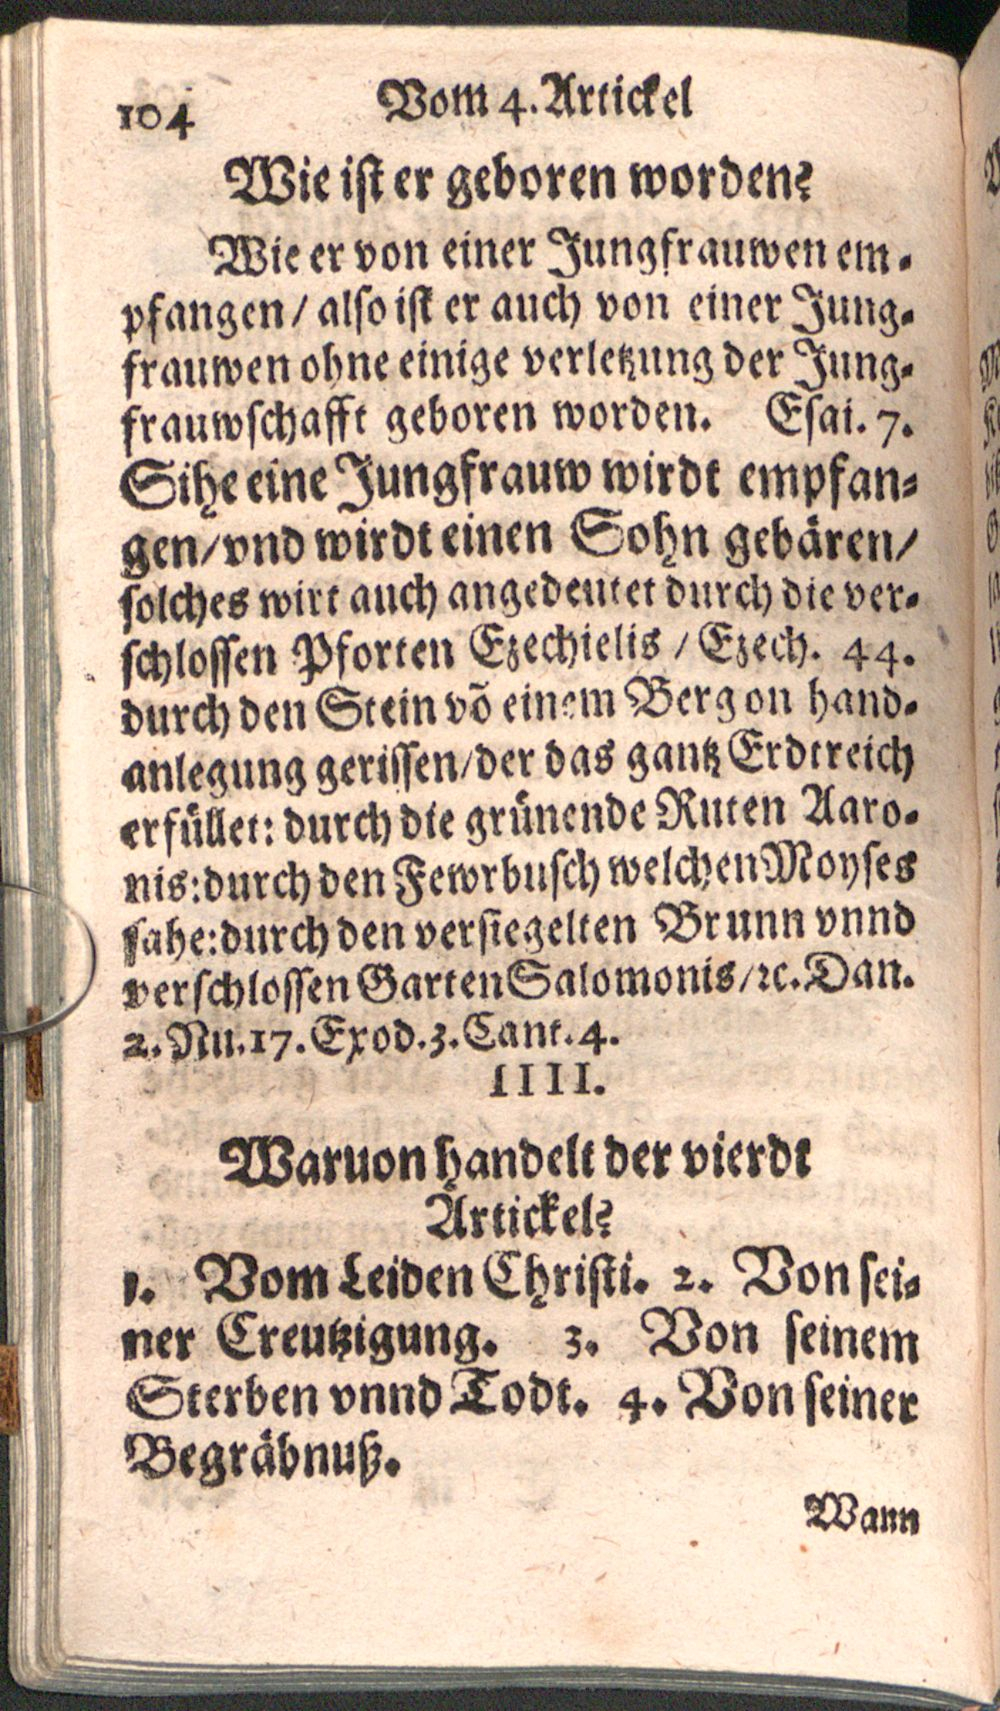 104 Vom 4. Artickel
Wie ist er geboren worden?
Wie er von einer Jungfrauwen em-
pfangen / also ist er auch von einer Jung-
frauwen ohne einige verletzung der Jung-
frauwschafft geboren worden. Esai. 7.
Sihe eine Jungfrauw wirdt empfan-
gen / vnd wirdt einen Sohn gebären /
solches wirt auch angedeutet durch die ver-
schlossen Pforten Ezechielis / Ezech. 44.
durch den Stein võ einem Berg on hand-
anlegung gerissen / der das gantz Erdtreich
erfüllet: durch die grünende Ruten Aaro-
nis: durch den Fewrbusch welchen Moyses
sahe: durch den versiegelten Brunn vnnd
verschlossen Garten Salomonis / ꝛc. Dan.
2. Nu. 17. Exod. 3. Cant. 4.
IIII.
Waruon handelt der vierdt
Artickel?
1. Vom Leiden Christi. 2. Von sei-
ner Creutzigung. 3. Von seinem
Sterben vnnd Todt. 4. Von seiner
Begräbnuß.
Wann